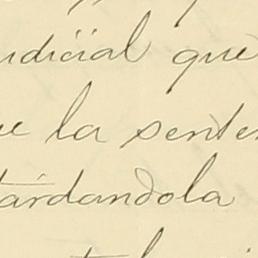 udicial que
ue la senten
tárdandola